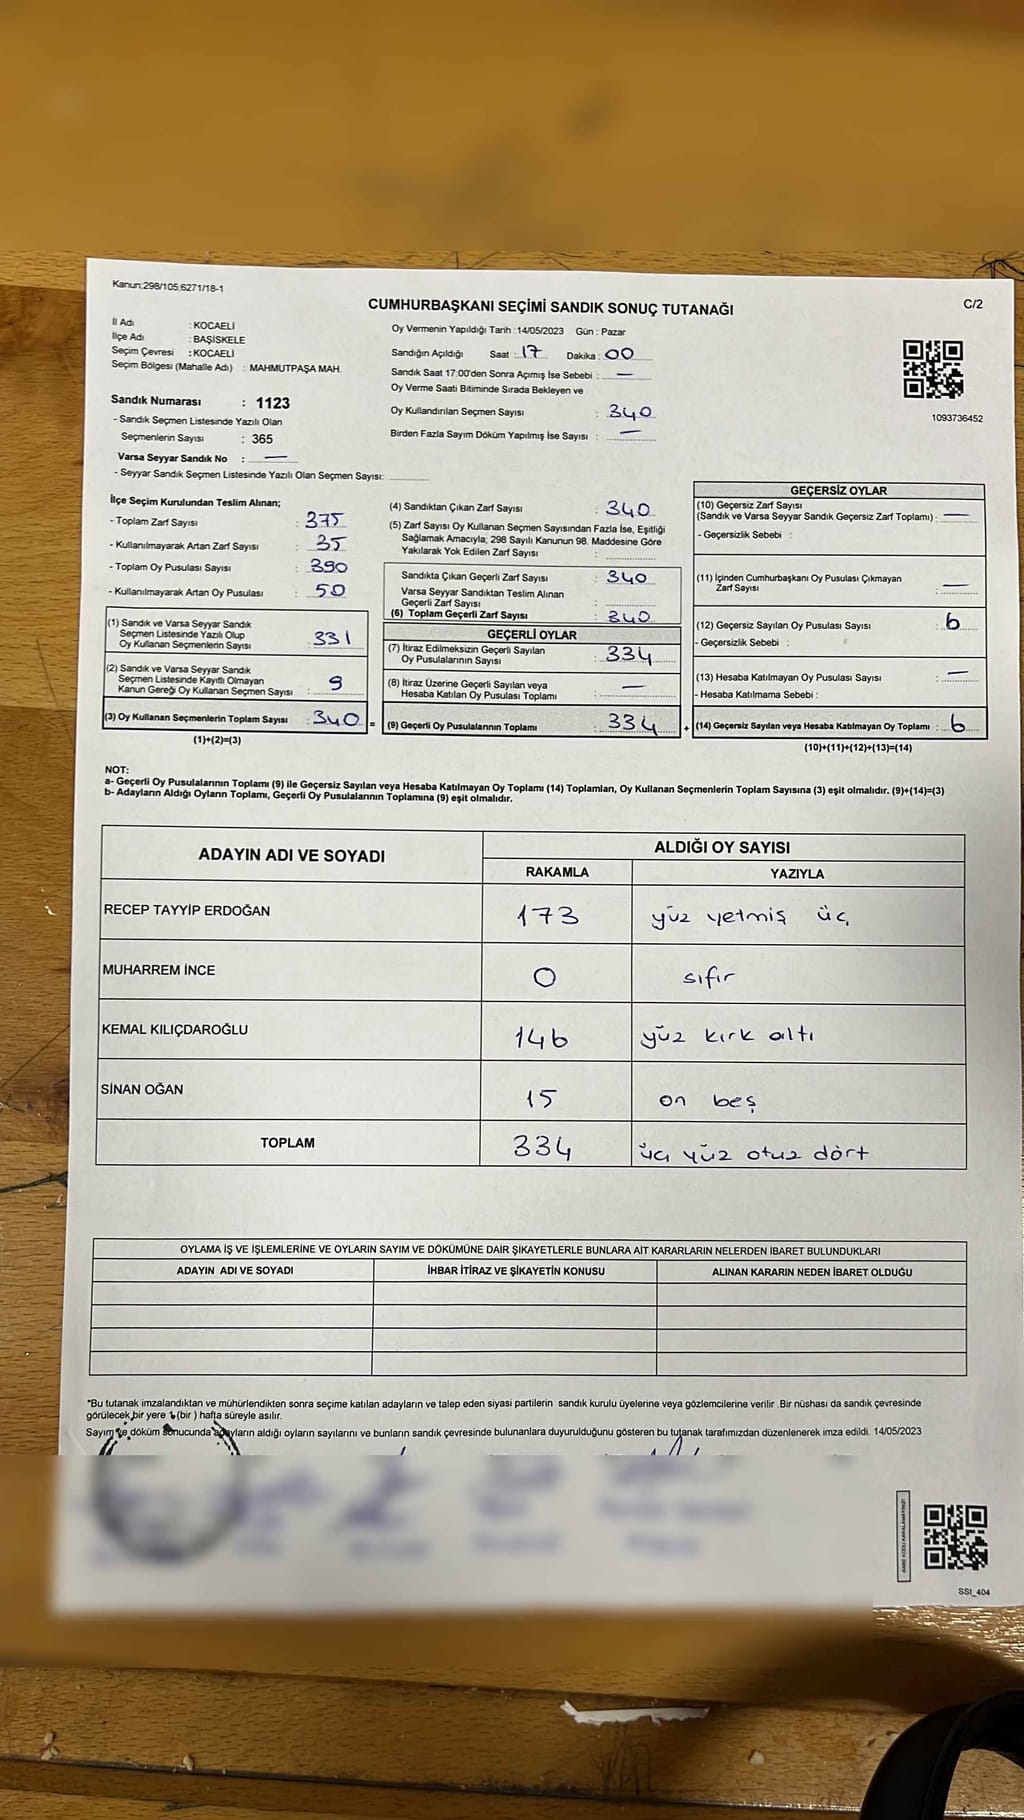 Kanun;298/105;6271/18-1
CUMHURBAŞKANI SEÇİMİ SANDIK SONUÇ TUTANAĞI
C/2
İl Adı : KOCAELİ
İlçe Adı : BAŞİSKELE
Seçim Çevresi : KOCAELİ
Seçim Bölgesi (Mahalle Adı) : MAHMUTPAŞA MAH.
Sandık Numarası : 1123
- Sandık Seçmen Listesinde Yazılı Olan
Seçmenlerin Sayısı : 365
Varsa Seyyar Sandık No : —
- Seyyar Sandık Seçmen Listesinde Yazılı Olan Seçmen Sayısı:
Oy Vermenin Yapıldığı Tarih :14/05/2023 Gün : Pazar
Sandığın Açıldığı Saat : 17 Dakika : 00
Sandık Saat 17:00'den Sonra Açımış İse Sebebi : —
Oy Verme Saati Bitiminde Sırada Bekleyen ve
Oy Kullandırılan Seçmen Sayısı : 340
Birden Fazla Sayım Döküm Yapılmış İse Sayısı : —
1093736452
İlçe Seçim Kurulundan Teslim Alınan;
- Toplam Zarf Sayısı : 375
- Kullanılmayarak Artan Zarf Sayısı : 35
- Toplam Oy Pusulası Sayısı : 390
- Kullanılmayarak Artan Oy Pusulası : 50
(1) Sandık ve Varsa Seyyar Sandık
Seçmen Listesinde Yazılı Olup
Oy Kullanan Seçmenlerin Sayısı : 331
(2) Sandık ve Varsa Seyyar Sandık
Seçmen Listesinde Kayıtlı Olmayan
Kanun Gereği Oy Kullanan Seçmen Sayısı : 9
(3) Oy Kullanan Seçmenlerin Toplam Sayısı : 340 =
(1)+(2)=(3)
(4) Sandıktan Çıkan Zarf Sayısı : 340
(5) Zarf Sayısı Oy Kullanan Seçmen Sayısından Fazla İse, Eşitliği
Sağlamak Amacıyla; 298 Sayılı Kanunun 98. Maddesine Göre
Yakılarak Yok Edilen Zarf Sayısı :
Sandıkta Çıkan Geçerli Zarf Sayısı : 340
Varsa Seyyar Sandıktan Teslim Alınan
Geçerli Zarf Sayısı :
(6) Toplam Geçerli Zarf Sayısı : 340
GEÇERLİ OYLAR
(7) İtiraz Edilmeksizin Geçerli Sayılan
Oy Pusulalarının Sayısı : 334
(8) İtiraz Üzerine Geçerli Sayılan veya
Hesaba Katılan Oy Pusulası Toplamı : —
(9) Geçerli Oy Pusulalarının Toplamı : 334 +
GEÇERSİZ OYLAR
(10) Geçersiz Zarf Sayısı
(Sandık ve Varsa Seyyar Sandık Geçersiz Zarf Toplamı) : —
- Geçersizlik Sebebi :
(11) İçinden Cumhurbaşkanı Oy Pusulası Çıkmayan
Zarf Sayısı : —
(12) Geçersiz Sayılan Oy Pusulası Sayısı : 6
- Geçersizlik Sebebi :
(13) Hesaba Katılmayan Oy Pusulası Sayısı : —
- Hesaba Katılmama Sebebi :
(14) Geçersiz Sayılan veya Hesaba Katılmayan Oy Toplamı : 6
(10)+(11)+(12)+(13)=(14)
NOT:
a- Geçerli Oy Pusulalarının Toplamı (9) ile Geçersiz Sayılan veya Hesaba Katılmayan Oy Toplamı (14) Toplamları, Oy Kullanan Seçmenlerin Toplam Sayısına (3) eşit olmalıdır. (9)+(14)=(3)
b- Adayların Aldığı Oyların Toplamı, Geçerli Oy Pusulalarının Toplamına (9) eşit olmalıdır.
ADAYIN ADI VE SOYADI
ALDIĞI OY SAYISI
RAKAMLA YAZIYLA
RECEP TAYYİP ERDOĞAN 173 yüz yetmiş üç
MUHARREM İNCE 0 sıfır
KEMAL KILIÇDAROĞLU 146 yüz kırk altı
SİNAN OĞAN 15 on beş
TOPLAM 334 üç yüz otuz dört
OYLAMA İŞ VE İŞLEMLERİNE VE OYLARIN SAYIM VE DÖKÜMÜNE DAİR ŞİKAYETLERLE BUNLARA AİT KARARLARIN NELERDEN İBARET BULUNDUKLARI
ADAYIN ADI VE SOYADI İHBAR İTİRAZ VE ŞİKAYETİN KONUSU ALINAN KARARIN NEDEN İBARET OLDUĞU
*Bu tutanak imzalandıktan ve mühürlendikten sonra seçime katılan adayların ve talep eden siyasi partilerin sandık kurulu üyelerine veya gözlemcilerine verilir .Bir nüshası da sandık çevresinde
görülecek bir yere 1 (bir ) hafta süreyle asılır.
Sayım ve döküm sonucunda adayların aldığı oyların sayılarını ve bunların sandık çevresinde bulunanlara duyurulduğunu gösteren bu tutanak tarafımızdan düzenlenerek imza edildi. 14/05/2023
SSI_404